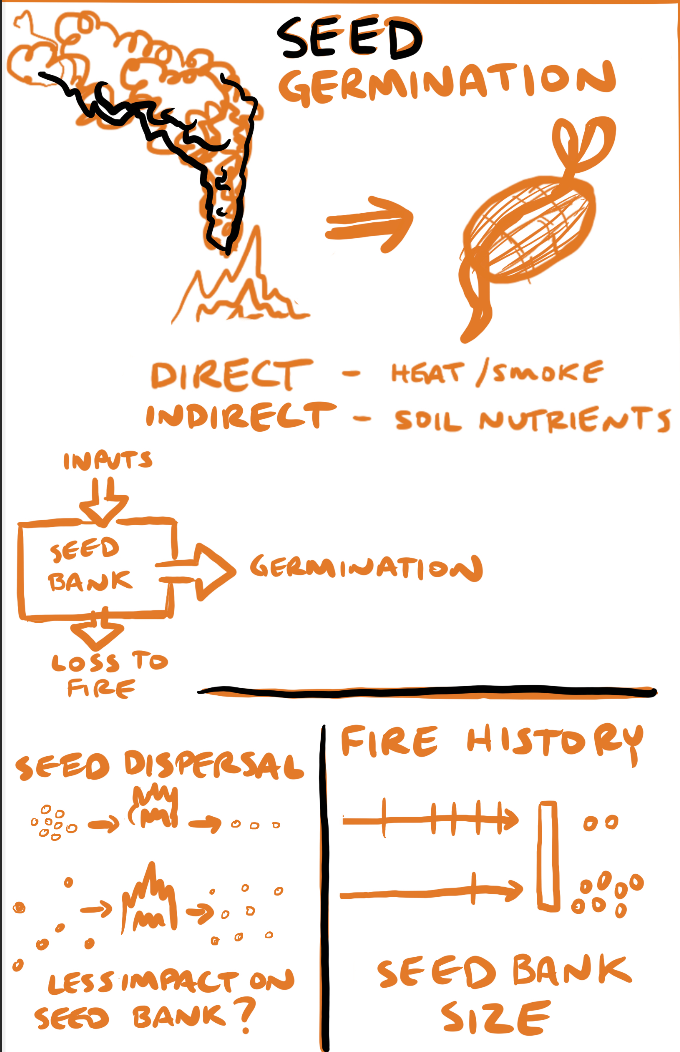 SEED
GERMINATION
DIRECT - HEAT/SMOKE
INDIRECT - SOIL NUTRIENTS
INPUTS
SEED
BANK
GERMINATION
LOSS TO
FIRE
SEED DISPERSAL
LESS IMPACT ON
SEED BANK?
FIRE HISTORY
SEED BANK
SIZE